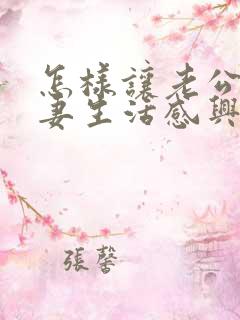 怎樣讓老公
妻生活感興
張馨